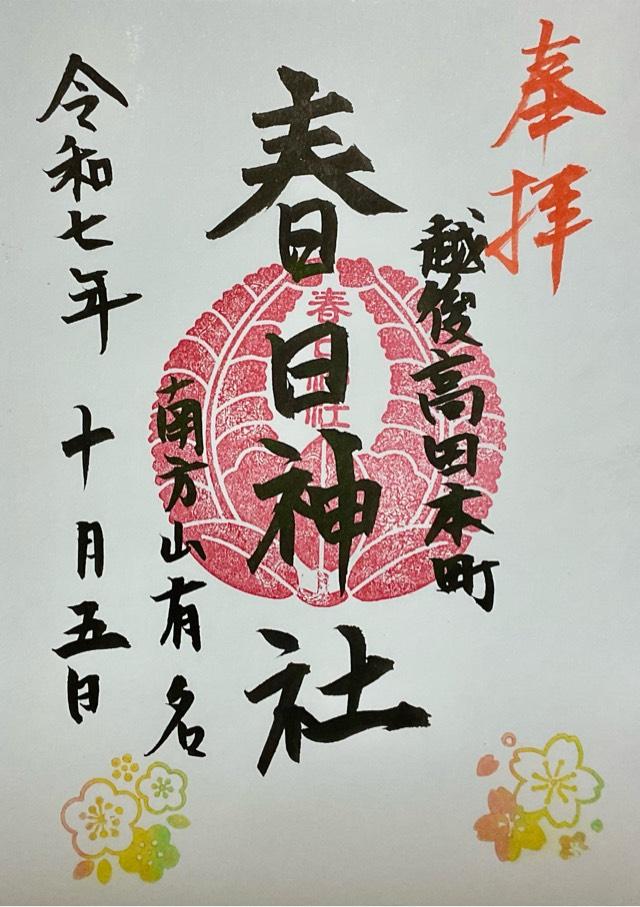 奉拝
越後高田本町
春日神社
春日神社
南方山有名
令和七年 十月五日